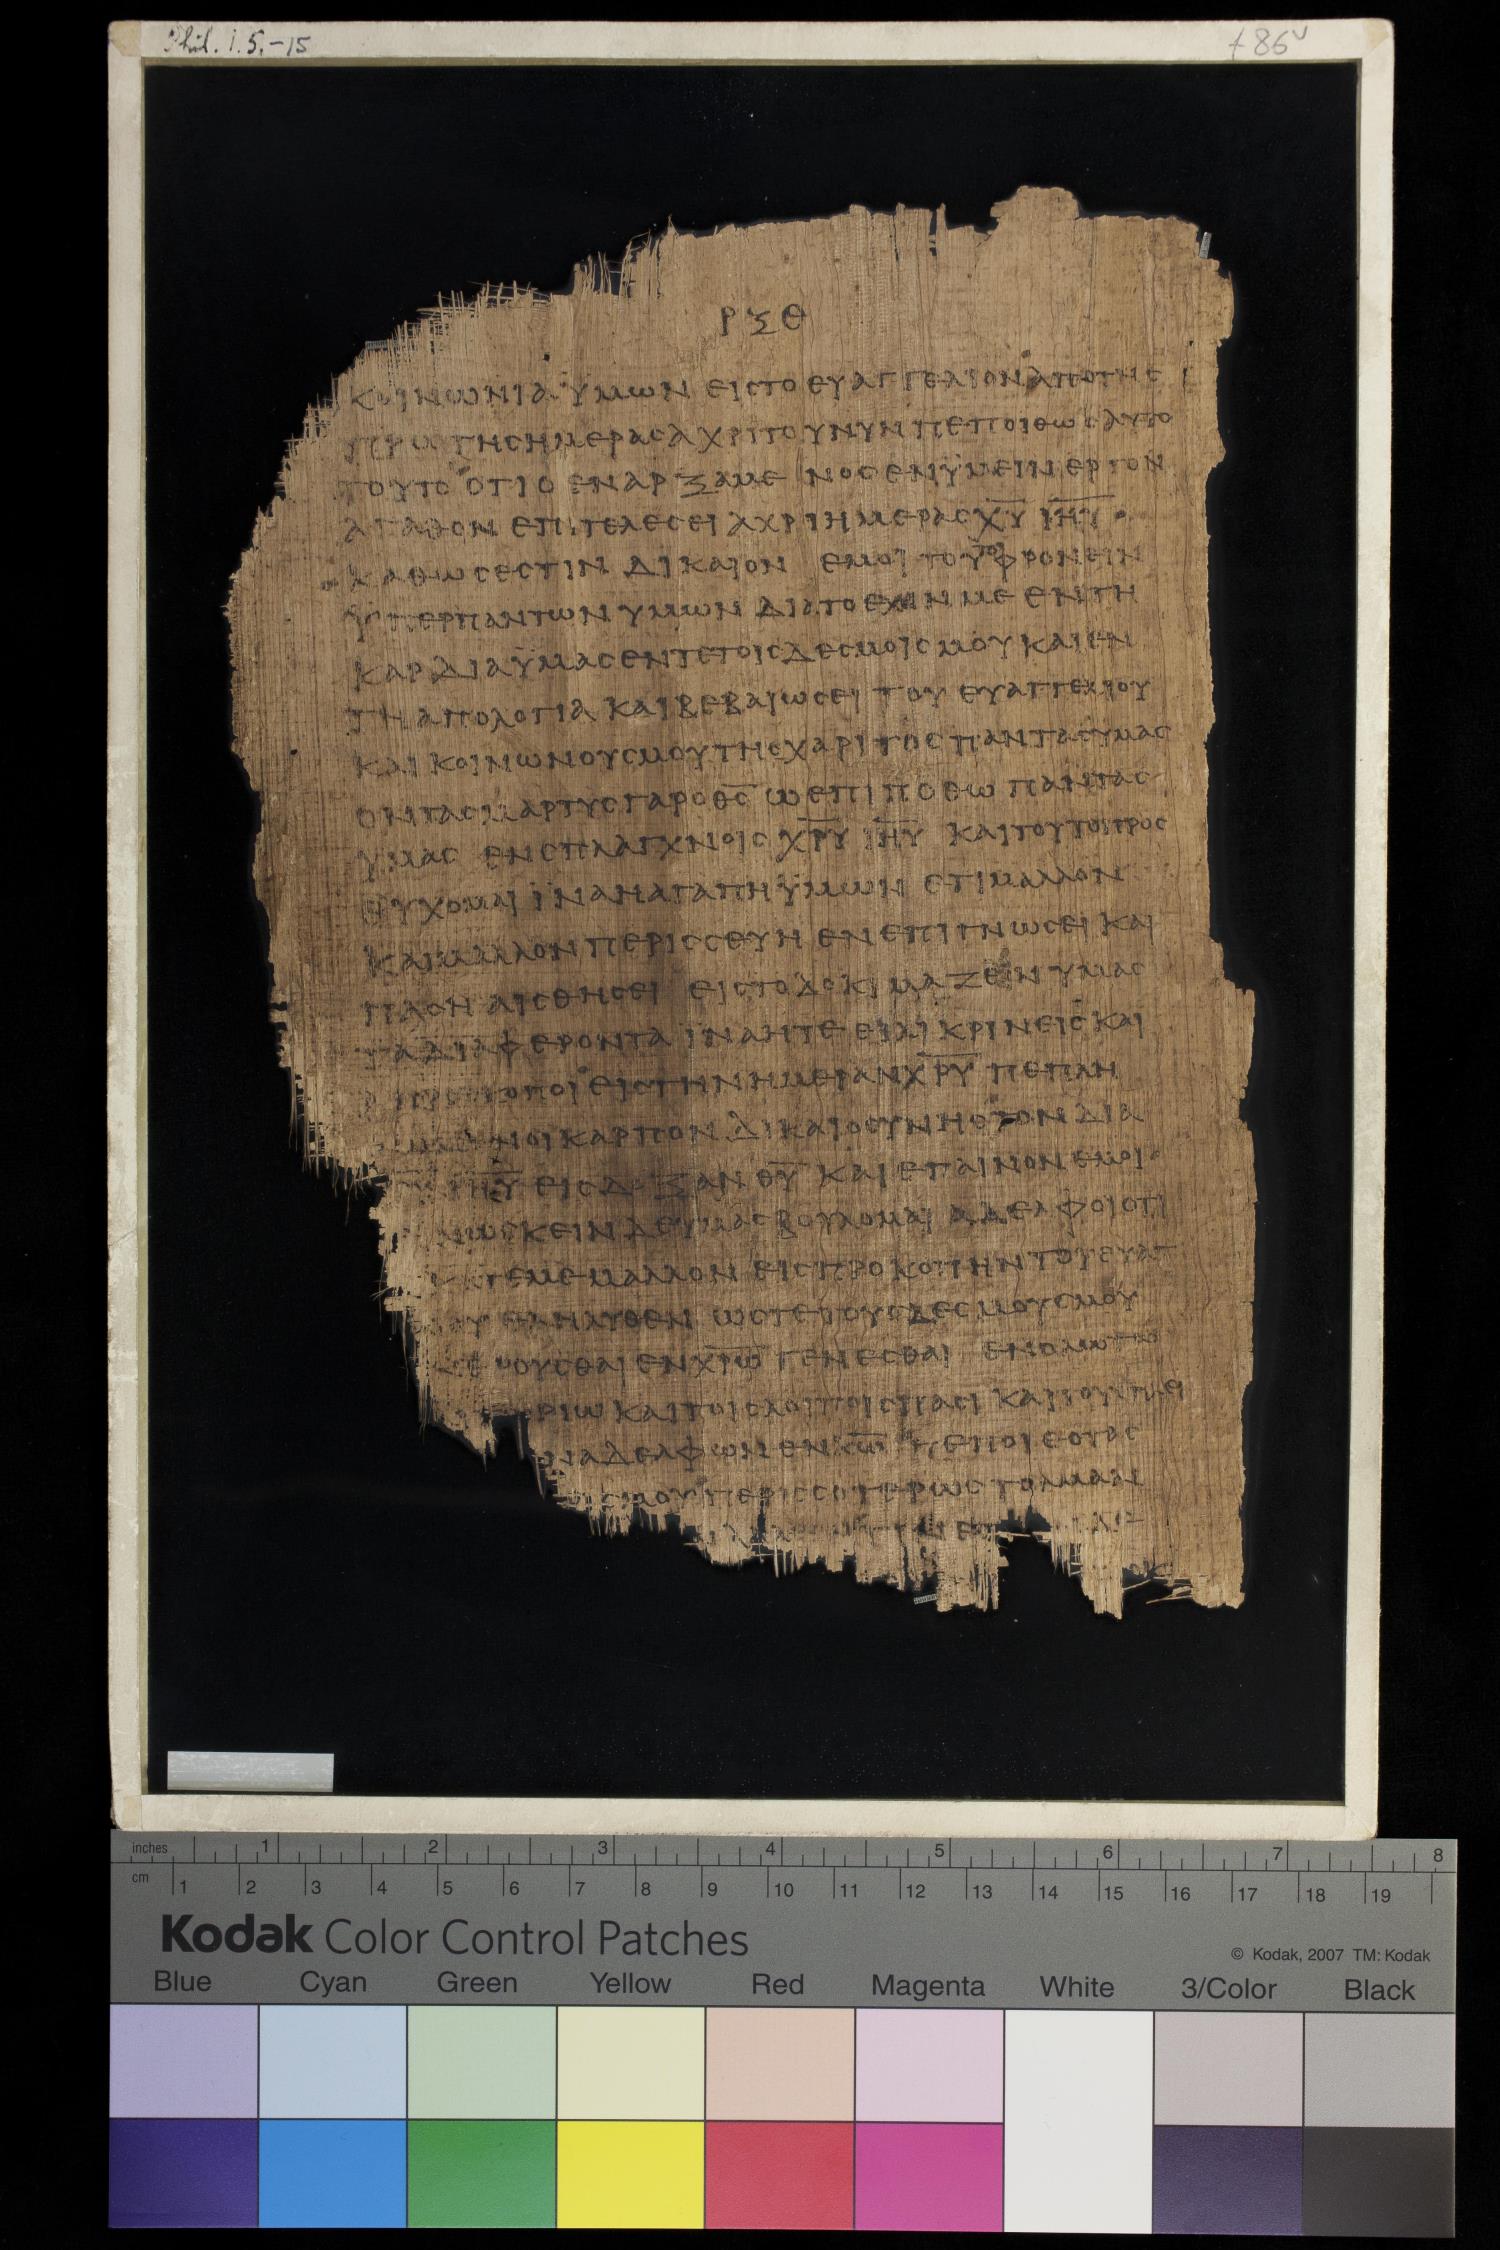 Phil. 1. 5.-15
f 86v
ΡΞΘ
ΚΟΙΝΩΝΙΑ ΫΜΩΝ ΕΙΣ ΤΟ ΕΥΑΓΓΕΛΙΟΝ ΑΠΟ ΤΗΣ
ΠΡΩΤΗΣ ΗΜΕΡΑΣ ΑΧΡΙ ΤΟΥ ΝΥΝ ΠΕΠΟΙΘΩΣ ΑΥΤΟ
ΤΟΥΤΟ ΟΤΙ Ο ΕΝΑΡΞΑΜΕΝΟΣ ΕΝ ΫΜΕΙΝ ΕΡΓΟΝ
ΑΓΑΘΟΝ ΕΠΙΤΕΛΕΣΕΙ ΑΧΡΙ ΗΜΕΡΑΣ Χ̅Υ̅ Ι̅Η̅Υ̅
ΚΑΘΩΣ ΕΣΤΙΝ ΔΙΚΑΙΟΝ ΕΜΟΙ ΤΟΥΤΟ ΦΡΟΝΕΙΝ
ΫΠΕΡ ΠΑΝΤΩΝ ΥΜΩΝ ΔΙΑ ΤΟ ΕΧΙΝ ΜΕ ΕΝ ΤΗ
ΚΑΡΔΙΑ ΫΜΑΣ ΕΝ ΤΕ ΤΟΙΣ ΔΕΣΜΟΙΣ ΜΟΥ ΚΑΙ ΕΝ
ΤΗ ΑΠΟΛΟΓΙΑ ΚΑΙ ΒΕΒΑΙΩΣΕΙ ΤΟΥ ΕΥΑΓΓΕΛΙΟΥ
ΚΑΙ ΚΟΙΝΩΝΟΥΣ ΜΟΥ ΤΗΣ ΧΑΡΙΤΟΣ ΠΑΝΤΑΣ ΥΜΑΣ
ΟΝΤΑΣ ΜΑΡΤΥΣ ΓΑΡ Ο Θ̅Σ̅ ΩΣ ΕΠΙΠΟΘΩ ΠΑΝΤΑΣ
ΥΜΑΣ ΕΝ ΣΠΛΑΓΧΝΟΙΣ Χ̅Ρ̅Υ̅ Ι̅Η̅Υ̅ ΚΑΙ ΤΟΥΤΟ ΠΡΟΣ
ΕΥΧΟΜΑΙ ΪΝΑ Η ΑΓΑΠΗ ΫΜΩΝ ΕΤΙ ΜΑΛΛΟΝ
ΚΑΙ ΜΑΛΛΟΝ ΠΕΡΙΣΣΕΥΗ ΕΝ ΕΠΙΓΝΩΣΕΙ ΚΑΙ
ΠΑΣΗ ΑΙΣΘΗΣΕΙ ΕΙΣ ΤΟ ΔΟΚΙΜΑΖΕΙΝ ΥΜΑΣ
ΤΑ ΔΙΑΦΕΡΟΝΤΑ ΙΝΑ ΗΤΕ ΕΙΛΙΚΡΙΝΕΙΣ ΚΑΙ
ΟΠΟΙ ΕΙΣ ΤΗΝ ΗΜΕΡΑΝ Χ̅Ρ̅Υ̅ ΠΕΠΛΗ
ΝΟΙ ΚΑΡΠΟΝ ΔΙΚΑΙΟΣΥΝΗΣ ΤΟΝ ΔΙΑ
Ι̅Η̅Υ̅ ΕΙΣ ΔΟΞΑΝ Θ̅Υ̅ ΚΑΙ ΕΠΑΙΝΟΝ ΕΜΟΙ
ΝΩΣΚΕΙΝ ΔΕ ΥΜΑΣ ΒΟΥΛΟΜΑΙ ΑΔΕΛΦΟΙ ΟΤΙ
ΚΑΤ ΕΜΕ ΜΑΛΛΟΝ ΕΙΣ ΠΡΟΚΟΠΗΝ ΤΟΥ ΕΥΑΓ
ΟΥ ΕΛΗΛΥΘΕΝ ΩΣΤΕ ΤΟΥΣ ΔΕΣΜΟΥΣ ΜΟΥ
ΟΥΣ ΘΑΙ ΕΝ Χ̅Ρ̅Ω̅ ΓΕΝΕΣΘΑΙ ΕΝ ΟΛΩ ΤΩ
ΡΙΩ ΚΑΙ ΤΟΙΣ ΛΟΙΠΟΙΣ ΠΑΣΙ ΚΑΙ ΤΟΥΣ ΠΛΕΙ
ΝΑΔΕΛΦΩΝ ΕΝ Κ̅Ω̅ ΠΕΠΟΙΘΟΤΑΣ
ΙΣ ΜΟΥ ΠΕΡΙΣΣΟΤΕΡΩΣ ΤΟΛΜΑΝ
inches 1 2 3 4 5 6 7 8
cm 1 2 3 4 5 6 7 8 9 10 11 12 13 14 15 16 17 18 19
Kodak Color Control Patches
© Kodak, 2007 TM: Kodak
Blue Cyan Green Yellow Red Magenta White 3/Color Black